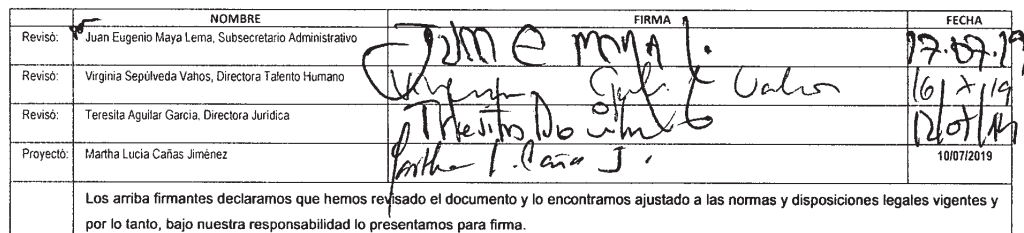 NOMBRE FIRMA FECHA
Revisó: Juan Eugenio Maya Lema, Subsecretario Administrativo Juan E Maya L. 17.07.19
Revisó: Virginia Sepúlveda Vahos, Directora Talento Humano Vahos 16/7/19
Revisó: Teresita Aguilar Garcia, Directora Jurídica 12/07/19
Proyectó: Martha Lucia Cañas Jiménez Martha L. Cañas J. 10/07/2019
Los arriba firmantes declaramos que hemos revisado el documento y lo encontramos ajustado a las normas y disposiciones legales vigentes y
por lo tanto, bajo nuestra responsabilidad lo presentamos para firma.